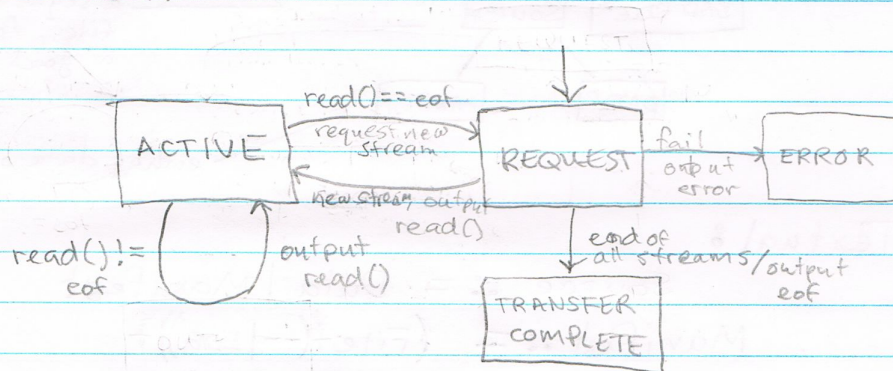 read()==eof
ACTIVE
request new
stream
REQUEST
fail
output
error
ERROR
new stream, output
read()
read() !=
eof
output
read()
end of
all streams/output
eof
TRANSFER
COMPLETE